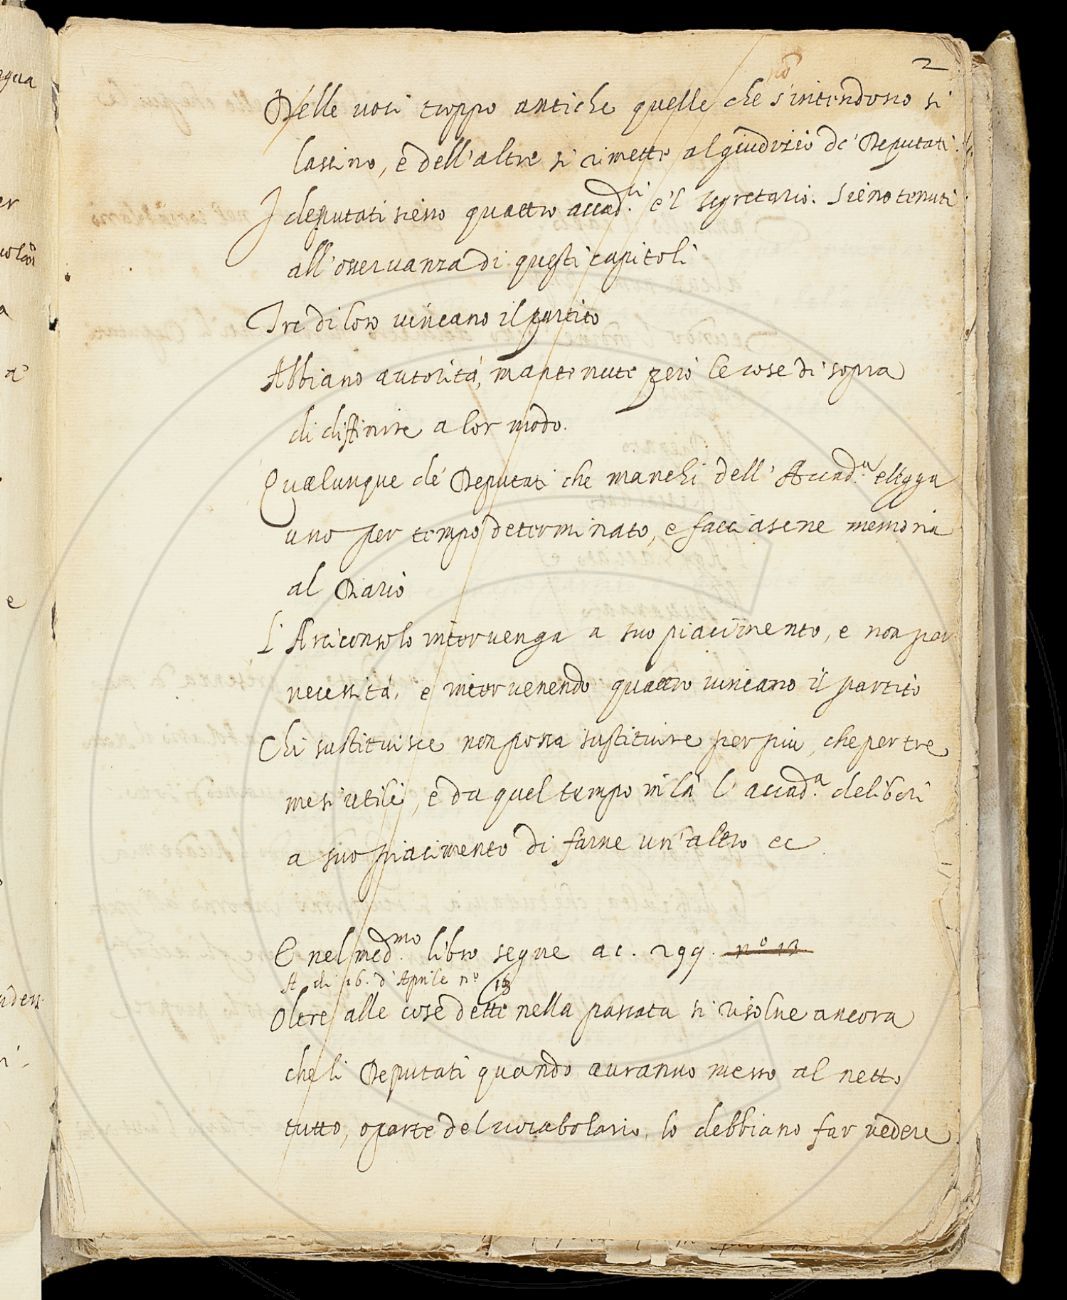 2
Delle voci troppo antiche quelle che s'intendono si
lascino, e dell'altre si rimette al giudizio de' Deputati.
I deputati sieno quattro accad.ci e 'l segretario. Sieno tenuti
all'osservanza di questi capitoli
Tre di loro vincano il partito
Abbiano autorità, mantenute però le cose di sopra
di diffinire a lor modo.
Qualunque de' Deputati che manchi dell'Accad.a elegga
uno per tempo determinato, e facciasene memoria
al Diario
L'Arciconsolo intervenga a suo piacimento, e non per
necessità, e intervenendo quattro vincano il partito
Chi sustituisce non possa sustituire per più, che per tre
mesi utili, e da quel tempo in là l'accad.a deliberi
a suo piacimento di farne un'altro ec
E nel med.mo libro segue a c. 299. n.o 13
A di 16. d'Aprile n.o 13
Oltre alle cose dette nella passata si risolve ancora
che li Deputati quando avranno messo al netto
tutto, o parte del vocabolario, lo debbiano far vedere